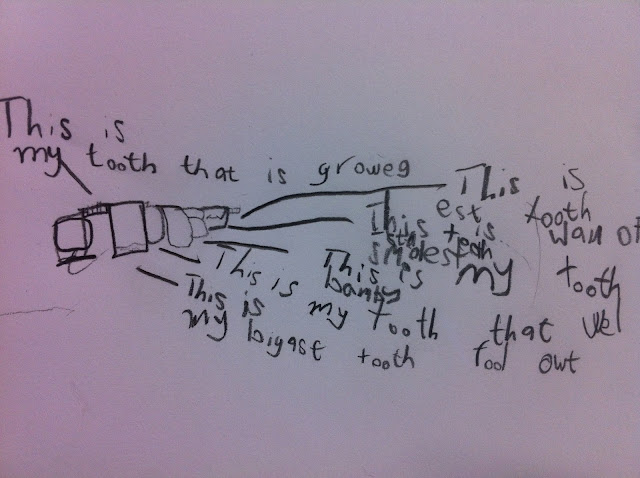 This is
my tooth that is groweg
This is
my bigast tooth
This is
my tooth that
fool owt
This is
This is
smolest
tooth
This is
wan of
my tooth